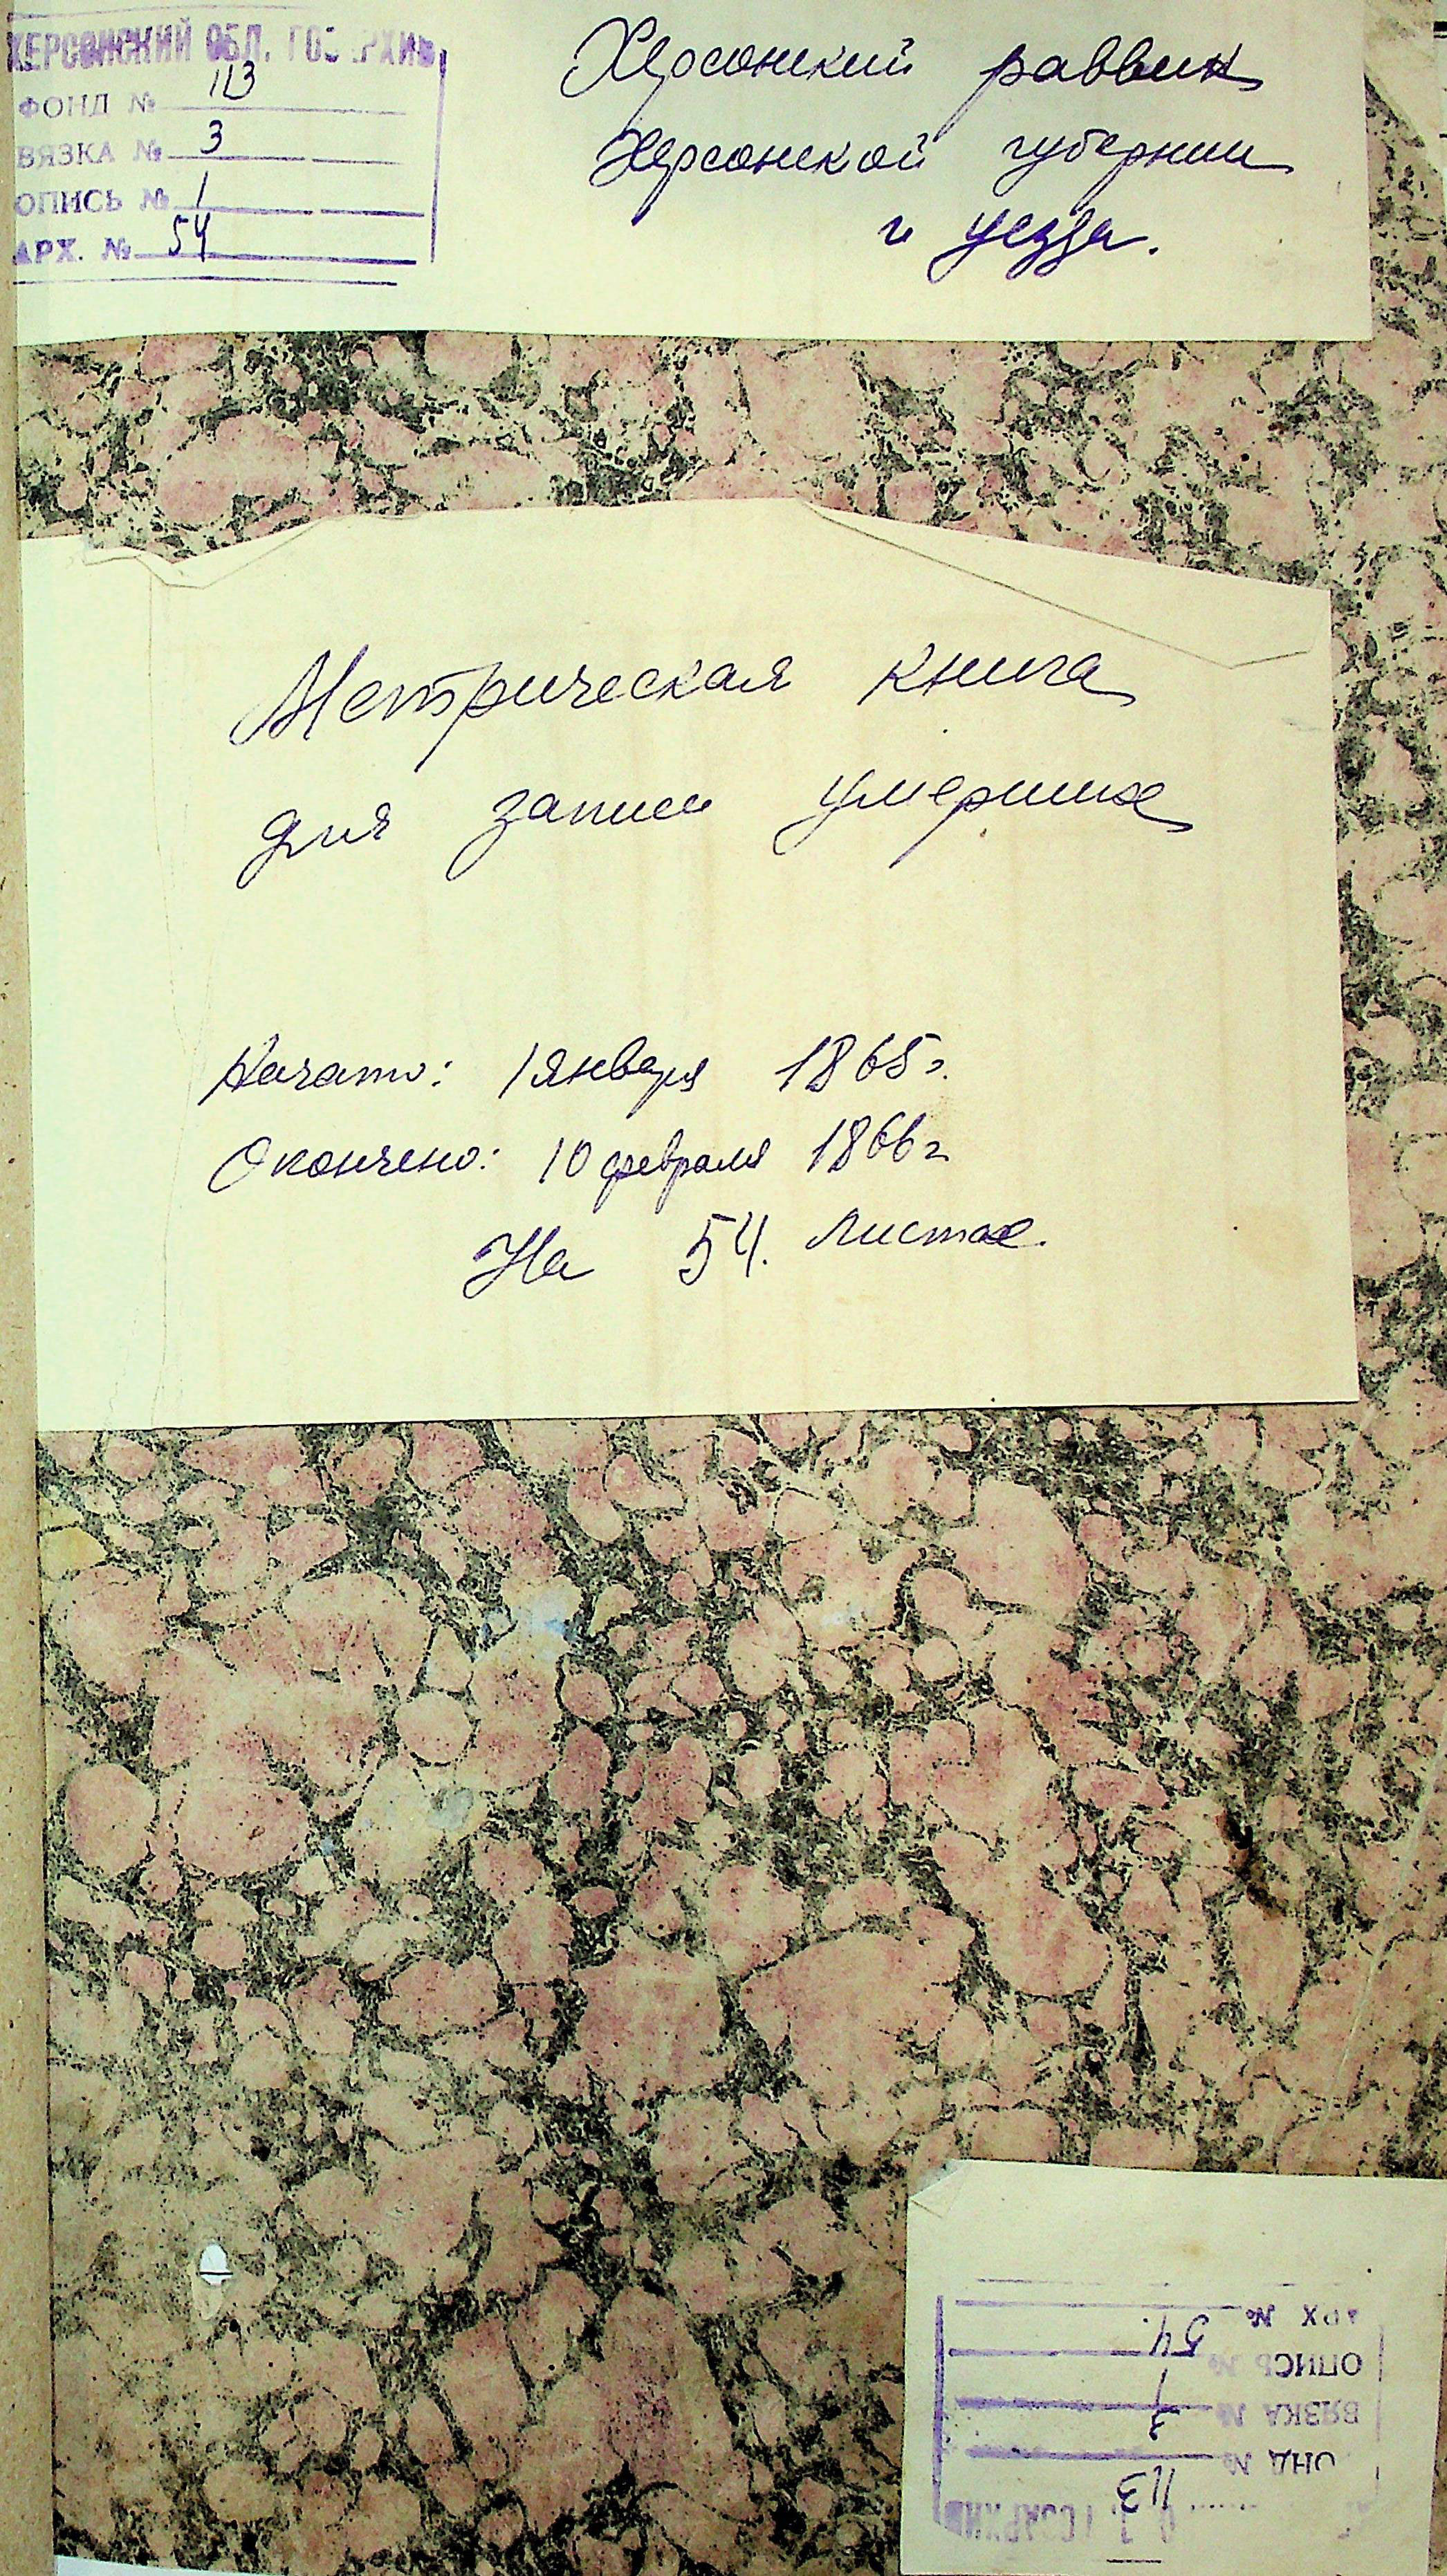 ХЕРСОНСКИЙ ОБЛ. ГОСАРХИВ
ФОНД № 113
ВЯЗКА № 3
ОПИСЬ № 1
АРХ. № 54
Херсонский раввин
Херсонской губернии
и уезда.
Метрическая книга
для записи умерших
Начато: 1 января 1865 г.
Окончено: 10 февраля 1866 г
На 54. листах.
ГОСАРХИВ
ОНД № 113
ВЯЗКА № 3
ОПИСЬ № 1
АРХ № 54.